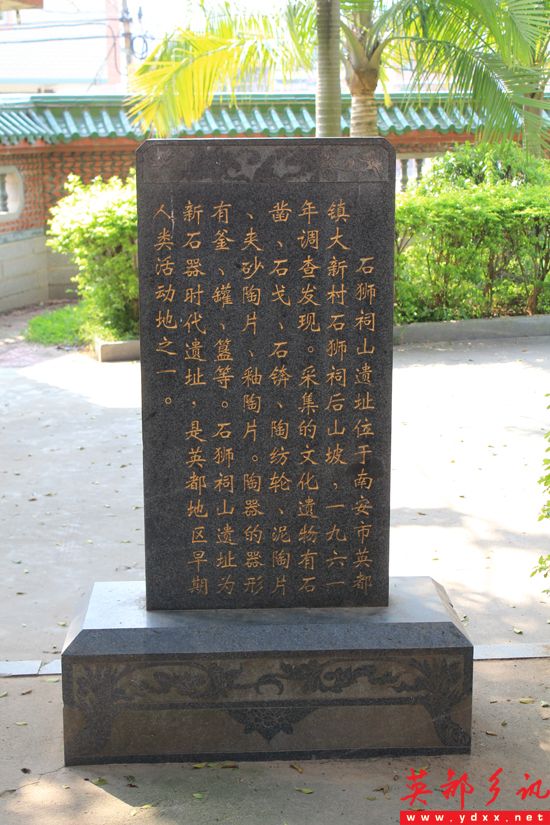 石狮祠山遗址位于南安市英都
镇大新村石狮祠后山坡，一九六一
年调查发现。采集的文化遗物有石
凿、石戈、石锛、陶纺轮、泥陶片
、夹砂陶片、釉陶片。陶器的器形
有釜、罐、簋等。石狮祠山遗址为
新石器时代遗址，是英都地区早期
人类活动地之一。
英都乡讯
www.ydxx.net